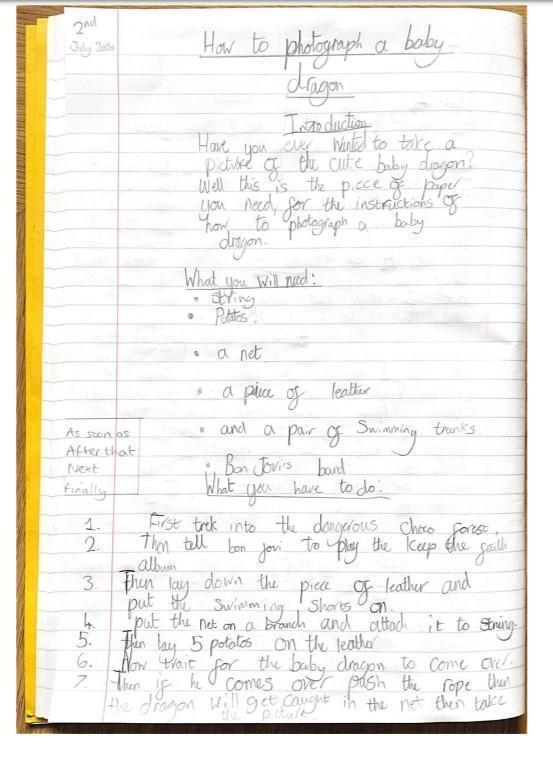 2nd
July 2020
How to photograph a baby
dragon
Introduction
Have you ever wanted to take a
picture of the cute baby dragon?
Well this is the piece of paper
you need, for the instructions of
how to photograph a baby
dragon.
What you will need:
• String
• Potatos.
• a net
• a piece of leather
• and a pair of Swimming trunks.
• Bon Jovis band
What you have to do:
As soon as
After that
Next
Finally
1. First trek into the dangerous Choco forest.
2. Then tell bon jovi to play the keep the faith
album
3. Then lay down the piece of leather and
put the Swimming shorts on.
4. put the net on a branch and attach it to string.
5. Then lay 5 potatos on the leather
6. Now wait for the baby dragon to come over.
7. Then if he comes over push the rope then
the dragon will get caught in the net then take
the picture